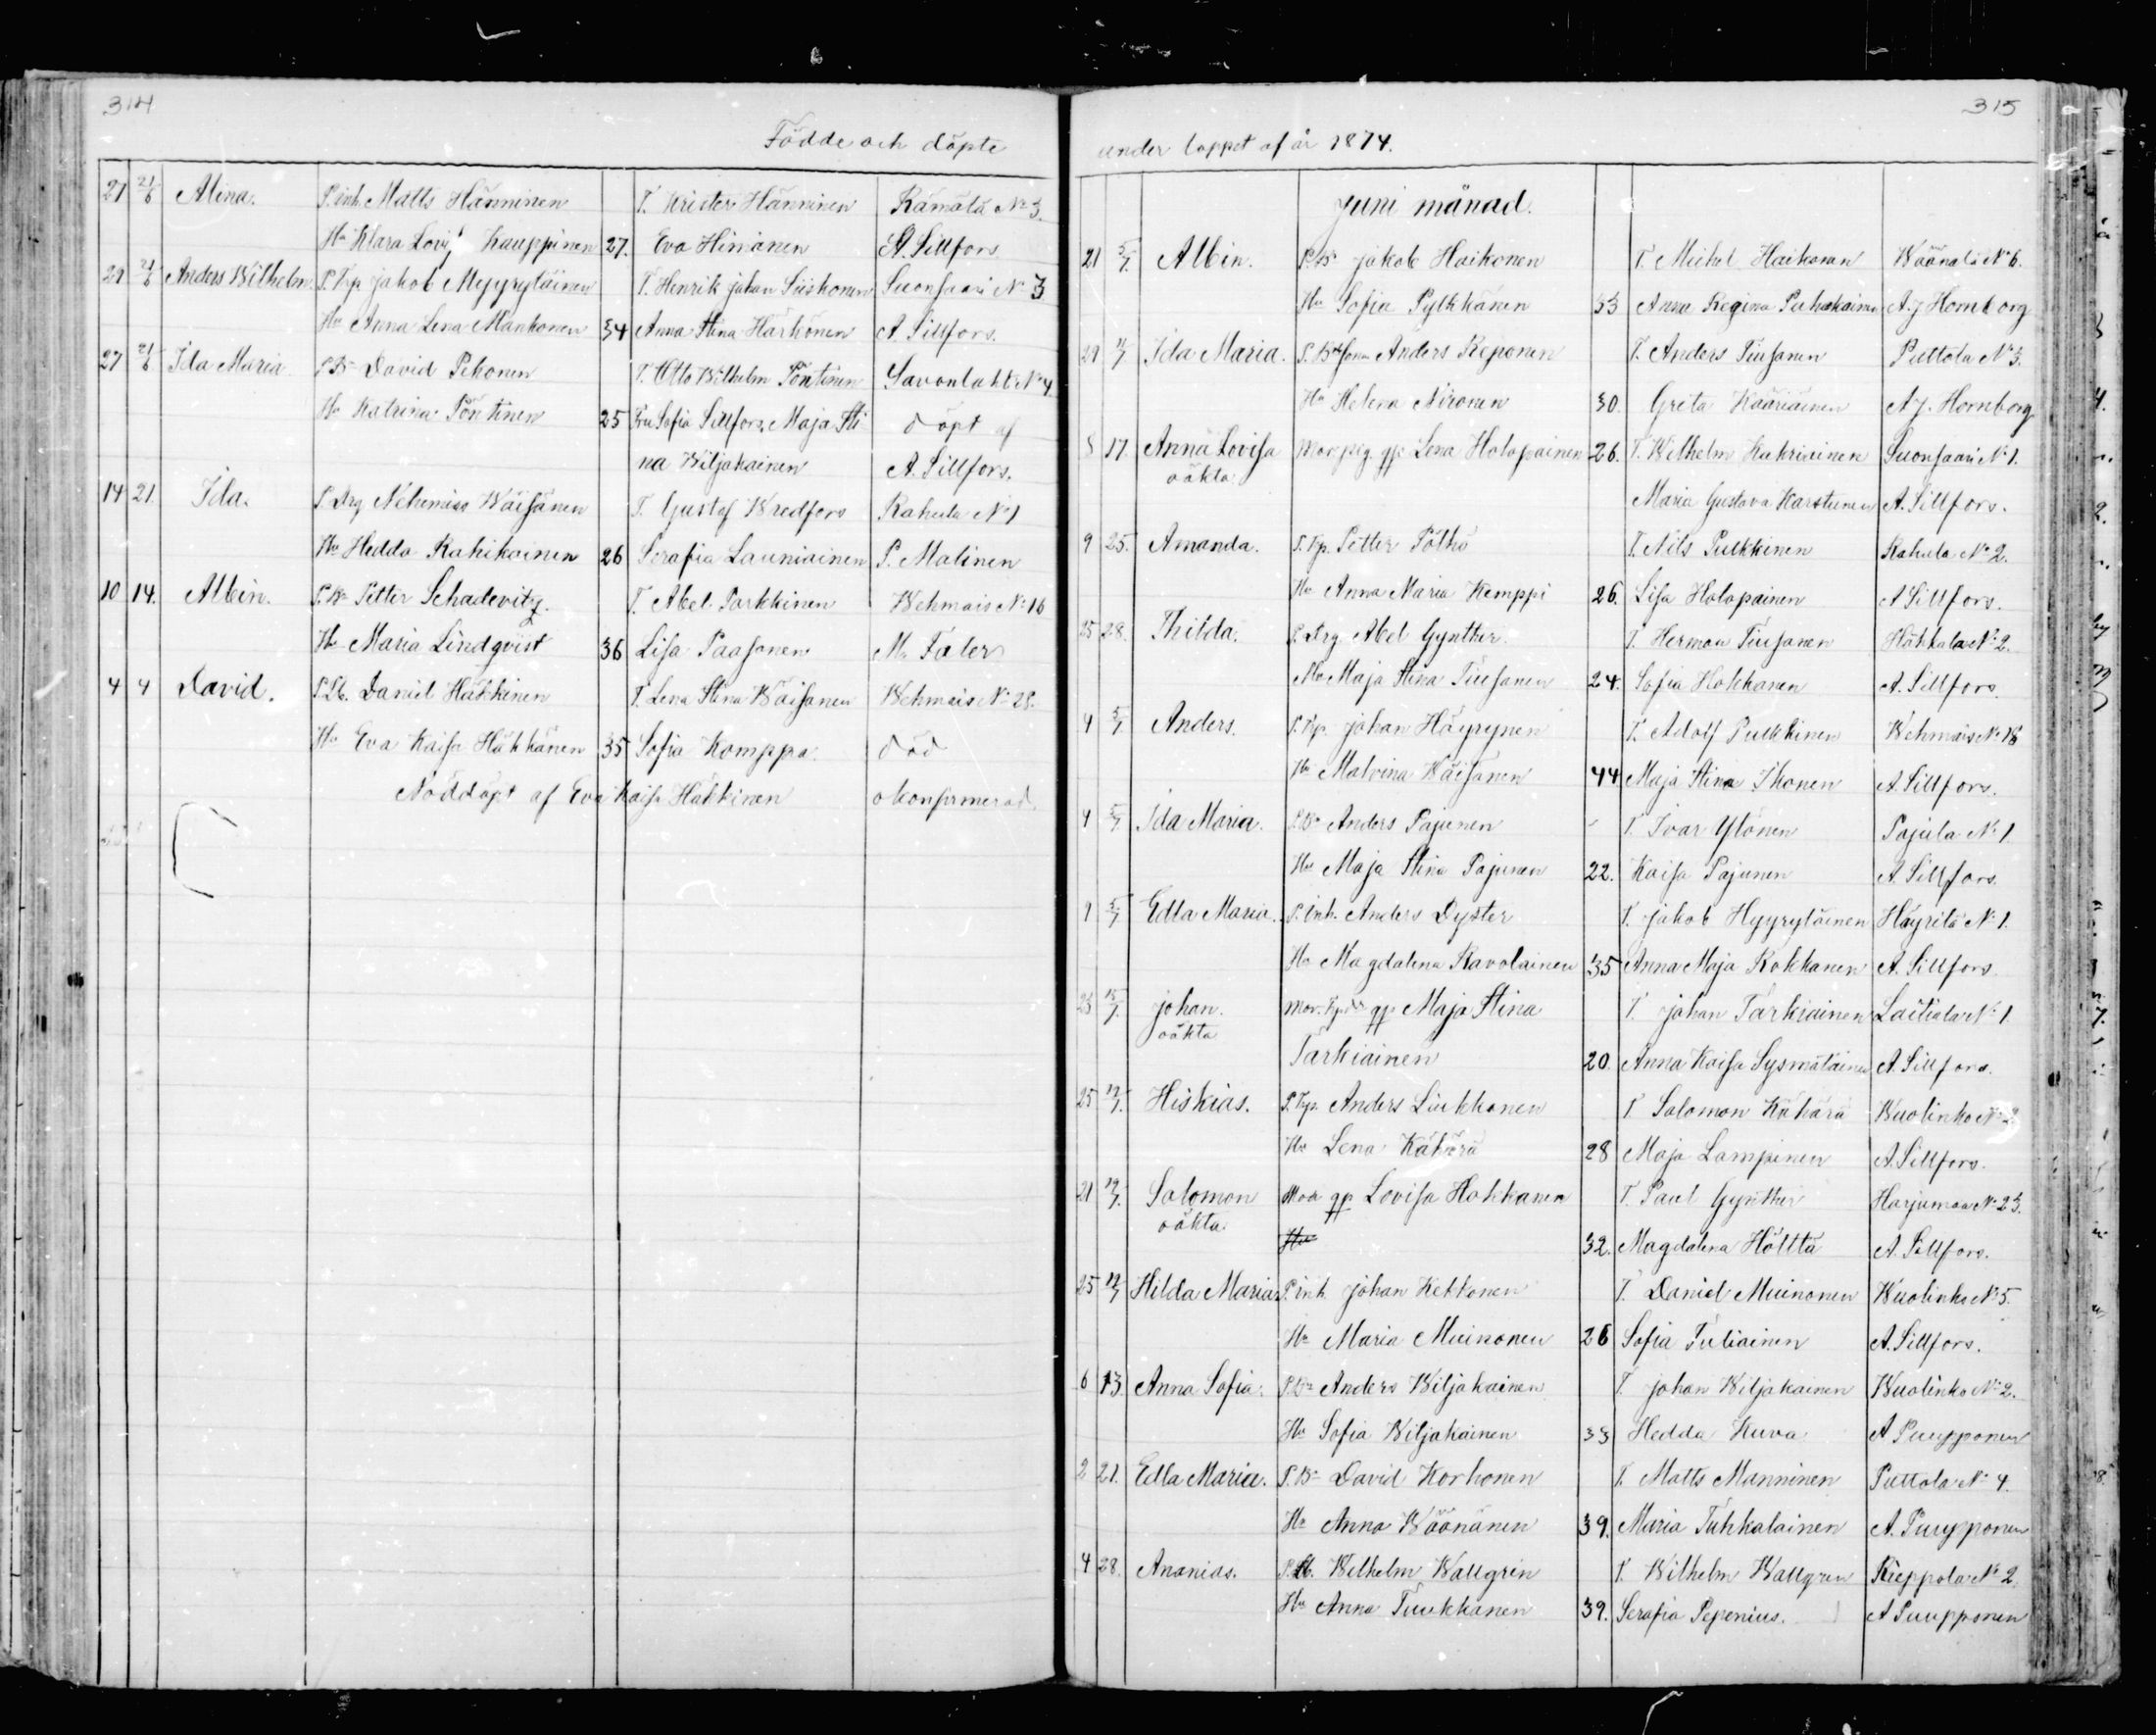 314
Födde och döpte
27 21/6 Alina. P. inh. Matts Hänninen T. Krister Hänninen Rämälä No 3.
Hu Klara Lovisa Kauppinen 27. Eva Himanen A. Sillfors
29 21/6 Anders Wilhelm. P. Tp. Jakob Myyryläinen T. Henrik Johan Siiskonen Suonsaari No 3
Hu Anna Lena Mankonen 34 Anna Stina Härkönen A. Sillfors.
27 21/6 Ida Maria P. Bo David Pekonen T. Otto Wilhelm Pöntinen Savonlaht No 4
Hu Katrina Pöntinen 25 Fru Sofia Sillfors, Maja Sti döpt af
na Wiljakainen A. Sillfors.
14 21. Ida. P. Drg Nehemias Wäisänen T. Gustaf Wredfors Rahula No 1
Hu Hedda Rahikainen 26 Serafia Launiainen P. Malinen
10 14. Albin. P. Bo Petter Schadevitz. T. Abel Parkkinen Wehmais No 16
Hu Maria Lindqvist 36 Lisa Paasonen M. Faler
4 4 David. P. Lb. Daniel Häkkinen T. Lena Stina Wäisänen Wehmais No 28.
Hu Eva Kaisa Häkkänen 35 Sofia Komppa. död
Nöddöpt af Eva Kaisa Häkkinen okonfirmerad.
315
under loppet af år 1874.
Juni månad.
21 5/7. Albin. P. Bo Jakob Haikonen T. Mickel Haikonen Wäänälä No 6.
Hu Sofia Pylkkänen 33 Anna Regina Puhakainen A. J Hornborg
29 11/7 Ida Maria. P. Bdsson Anders Reponen T. Anders Tiusanen Puttola No 3.
Hu Helena Nironen 30. Greta Kääriäinen A. J. Hornborg
8 17. Anna Lovisa Mor pig. qp. Lena Holopainen 26. T. Wilhelm Kukriininen Suonsaari No 1.
oäkta. Maria Gustava Karstunen A. Sillfors.
9 25. Amanda. P. Tp. Petter Pölhö T. Nils Pulkkinen Rahula No 2.
Hu Anna Maria Kemppi 26. Lisa Holopainen A Sillfors.
25 28. Thilda. P. Drg Abel Gynther. T. Herman Tiusanen Häkkala No 2.
Hu Maja Stina Tiusanen 24. Sofia Hokkanen A. Sillfors.
4 5/7. Anders. P. Tp. Johan Höyrynen T. Adolf Pulkkinen Wehmais No 18
Hu Malvina Wäisänen 44 Maja Stina Ikonen A. Sillfors.
4 5/7. Ida Maria. P. Bo Anders Pajunen T. Ivar Ylönen Pajula No 1
Hu Maja Stina Pajunen 22. Kaisa Pajunen A. Sillfors.
1 5/7 Edla Maria. P. inh. Anders Dyster T. Jakob Hyyryläinen Häyrilä No 1.
Hu Magdalena Ravolainen 35 Anna Maja Rokkanen A. Sillfors.
23 15/7. Johan. Mor. qp Maja Stina T. Johan Tarkiainen Laitiala No 1.
oäkta Tarkiainen 20. Anna Kaisa Sysmäläinen A. Sillfors.
25 12/7. Hiskias. P. Tp. Anders Liukkonen T Salomon Kähärä Wuolinko No
Hu Lena Kähärä 28 Maja Lampinen A. Sillfors.
21 19/7. Salomon Mor qp Lovisa Hokkanen T. Paul Gynther Harjumaa No 23.
oäkta. Hu 32. Magdalena Hölttä A. Sillfors.
25 19/7 Hilda Maria P. inh. Johan Kettonen T. Daniel Muinonen Wuolinko No 5.
Hu Maria Muinonen 26 Sofia Tuliainen A. Sillfors.
6 13. Anna Sofia. P. Bo Anders Wiljakainen T. Johan Wiljakainen Wuolinko No 2.
Hu Sofia Wiljakainen 33 Hedda Kuva A Puupponen
2 21. Edla Maria. P. Bo David Korhonen T. Matts Manninen Puttola No 4.
Hu Anna Wäänänen 39. Maria Tuhkalainen A. Puupponen
4 28. Ananias. P. Lb. Wilhelm Wallgrén T. Wilhelm Wallgren Rieppola No 2.
Hu Anna Tuukkanen 39. Serafia Pepenius. A Puupponen